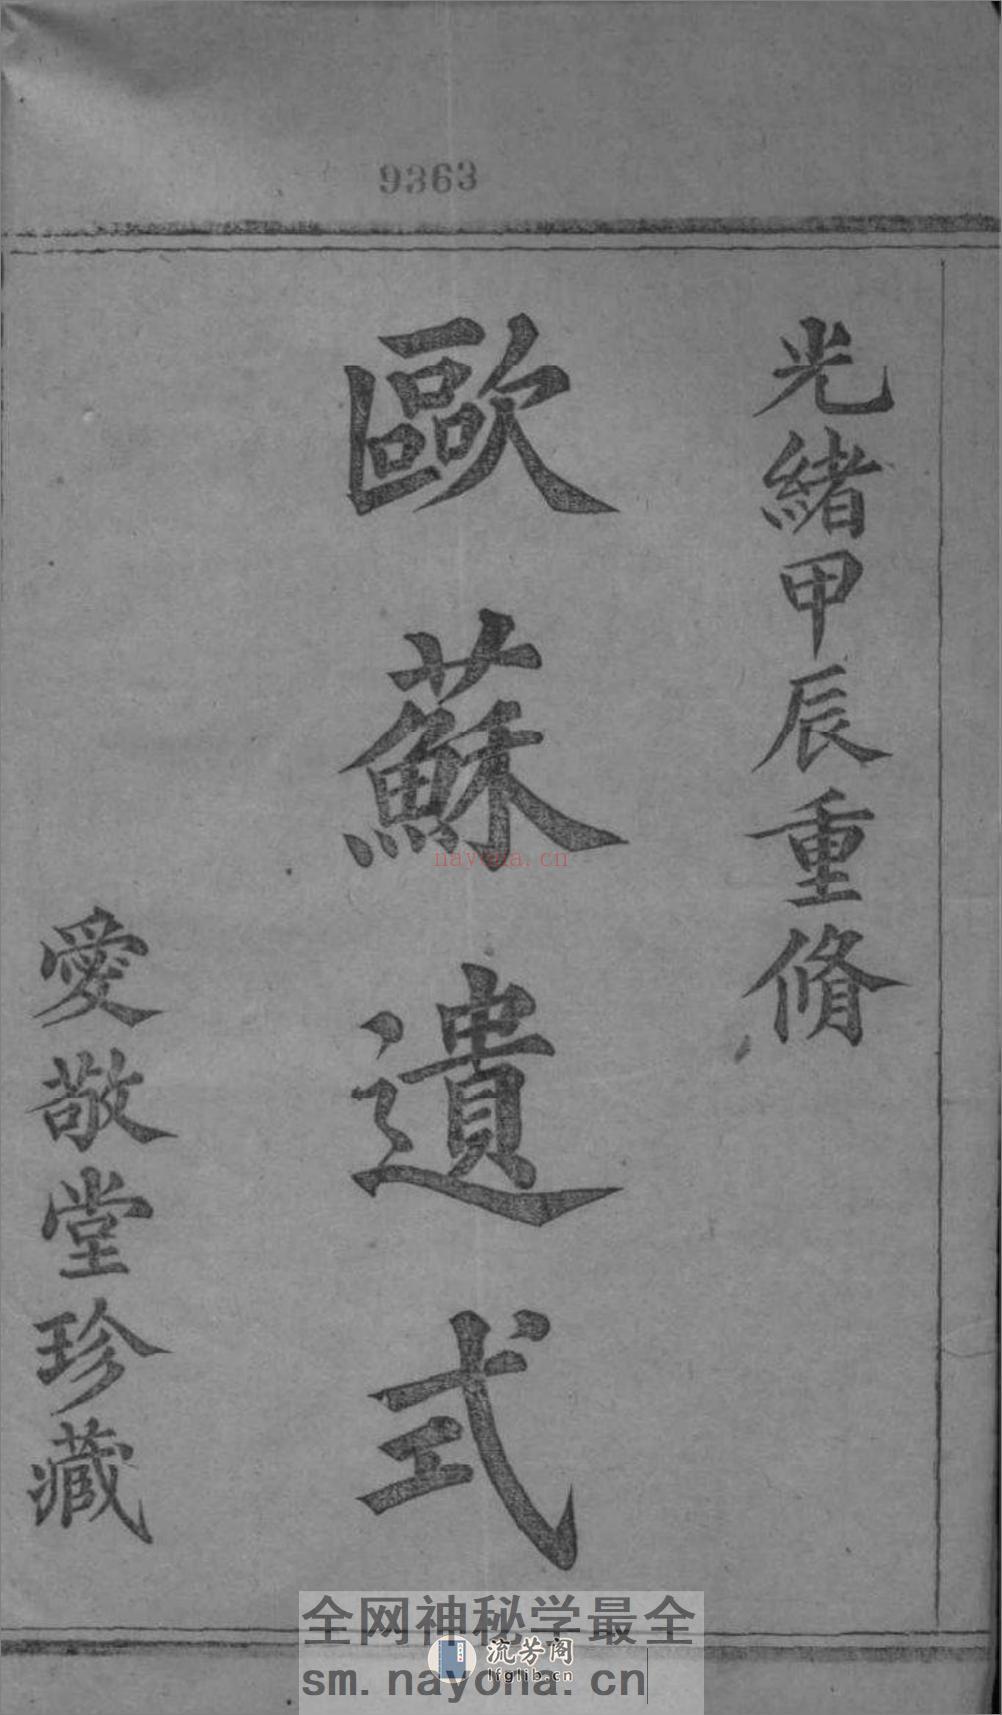 9363
光緒甲辰重脩
歐蘇遺式
愛敬堂珍藏
nayona.cn
全网神秘学最全
流芳阁
lfglib.cn
sm.nayona.cn